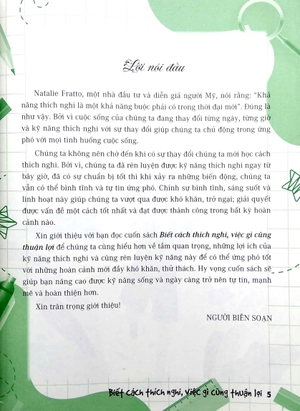 Lời nói đầu
Natalie Fratto, một nhà đầu tư và diễn giả người Mỹ, nói rằng: "Khả
năng thích nghi là một khả năng buộc phải có trong thời đại mới". Đúng là
như vậy. Bởi vì cuộc sống của chúng ta đang thay đổi từng ngày, từng giờ
và kỹ năng thích nghi với sự thay đổi giúp chúng ta chủ động trong ứng
phó với mọi tình huống cuộc sống.
Chúng ta không nên chờ đến khi có sự thay đổi chúng ta mới học cách
thích nghi. Bởi vì, chúng ta đã rèn luyện được kỹ năng thích nghi ngay từ
bây giờ, đã có sự chuẩn bị tốt thì khi xảy ra những biến động, chúng ta
vẫn có thể bình tĩnh và tự tin ứng phó. Chính sự bình tĩnh, sáng suốt và
linh hoạt này giúp chúng ta vượt qua được khó khăn, trở ngại; giải quyết
được vấn đề một cách tốt nhất và đạt được thành công trong bất kỳ hoàn
cảnh nào.
Xin giới thiệu với bạn đọc cuốn sách Biết cách thích nghi, việc gì cũng
thuận lợi để chúng ta cùng hiểu hơn về tầm quan trọng, những lợi ích của
kỹ năng thích nghi và cùng rèn luyện kỹ năng này để có thể ứng phó tốt
với những hoàn cảnh mới đầy khó khăn, thử thách. Hy vọng cuốn sách sẽ
giúp bạn nâng cao được kỹ năng sống và ngày càng trở nên tự tin, mạnh
mẽ và hoàn thiện hơn.
Xin trân trọng giới thiệu!
NGƯỜI BIÊN SOẠN
Biết cách thích nghi, việc gì cũng thuận lợi 5